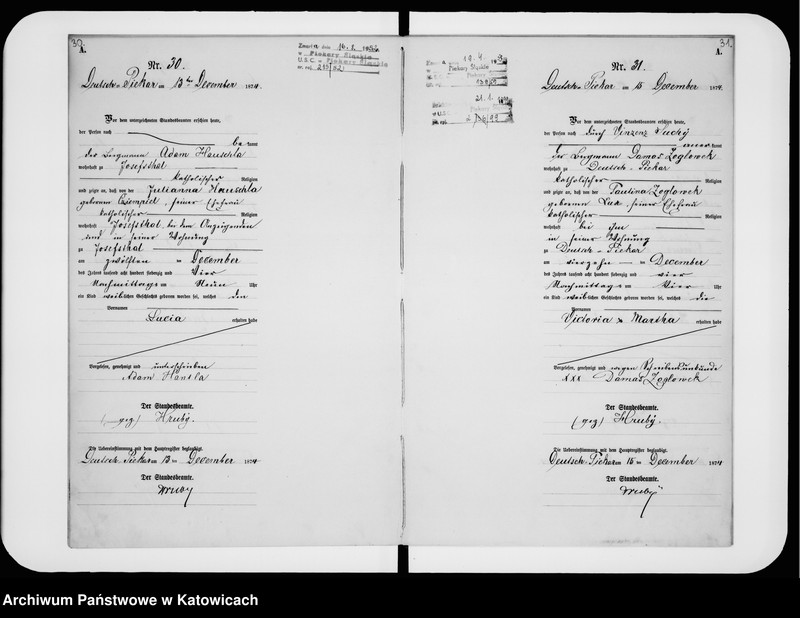 30.
A.
Nr. 30.
Deutsch-Piekar am 13ten December 1874.
Vor dem unterzeichneten Standesbeamten erschien heute,
der Person nach
be kannt
der Bergmann Adam Hauschla
wohnhaft zu Josefsthal
katholischer Religion
und zeigte an, daß von der Julianna Hauschla
geborenen Dziempiel, seiner Ehefrau
katholischer Religion
wohnhaft Josefsthal bei dem Anzeigenden
und in seiner Wohnung
zu Josefsthal
am zwölften ten December
des Jahres tausend acht hundert siebenzig und Vier
Nachmittags um Neun Uhr
ein Kind weiblichen Geschlechts geboren worden sei, welches den
Vornamen
Lucia erhalten habe
Vorgelesen, genehmigt und unterschrieben
Adam Hausla
Der Standesbeamte.
(gez) Hruby.
Die Uebereinstimmung mit dem Hauptregister beglaubigt.
Deutsch-Piekar am 13 ten December 1874
Der Standesbeamte.
Hruby
31.
A.
Nr. 31.
Deutsch-Piekar am 15 December 1874.
Vor dem unterzeichneten Standesbeamten erschien heute,
der Person nach durch Vinzenz Suchy
aner kannt
der Bergmann Damas Zoglowek
wohnhaft zu Deutsch-Piekar
katholischer Religion
und zeigte an, daß von der Paulina Zoglowek
geborenen Luk, seiner Ehefrau
katholischer Religion
wohnhaft bei ihm
in seiner Wohnung
zu Deutsch-Piekar
am vierzehn ten December
des Jahres tausend acht hundert siebenzig und vier
Nachmittags um Vier Uhr
ein Kind weiblichen Geschlechts geboren worden sei, welches die
Vornamen
Victoria & Martha erhalten habe
Vorgelesen, genehmigt und wegen Schreibensunkunde
XXX Damas Zoglowek
Der Standesbeamte.
(gez) Hruby.
Die Uebereinstimmung mit dem Hauptregister beglaubigt.
Deutsch-Piekar am 15 ten December 1874
Der Standesbeamte.
Hruby
Archiwum Państwowe w Katowicach